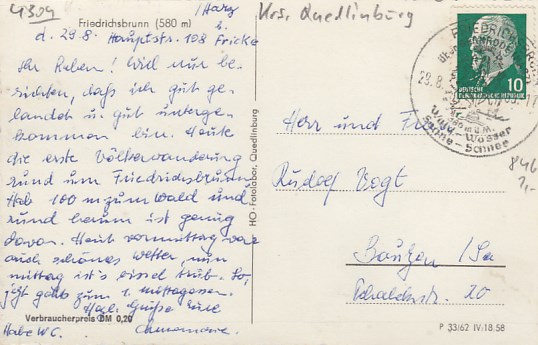 4304
/Harz
Krs. Quedlinburg
Friedrichsbrunn (580 m)
b.
d. 29.8. Hauptstr. 108 Fricke
Ihr Raben! Will nur be-
richten, daß ich gut ge-
landet u. gut unterge-
kommen bin. Heute
die erste Völkerwanderung
rund um Friedrichsbrunn.
Hab 100 m zum Wald und
rund herum ist genug
davon. Heut vormittag war
auch schönes Wetter, nun
mittag ist's trüb. So,
jetzt gehts zum 1. Mittagessen.
Herzl. Grüße Eure
Verbraucherpreis DM 0,20
Habe W.C.
HO-Fotolabor, Quedlinburg
FRIEDRICHSBRUNN
29.8.
Wald-Wasser
Sonne-Schnee
DEUTSCHE
DEMOKRATISCHE REPUBLIK
10
Herr und
Rudolf Vogt
846
1,-
Bautzen /Sa
20
P 33/62 IV-18-58